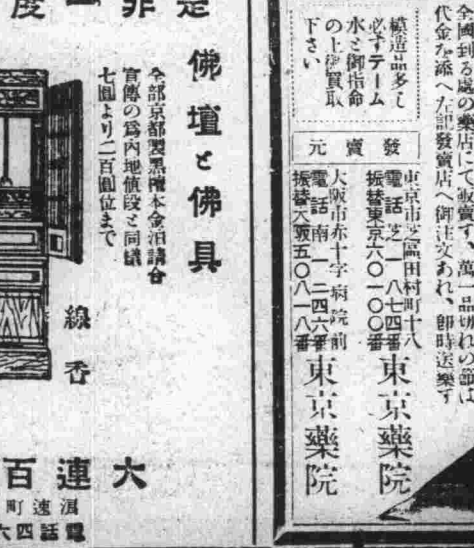 全國到る處の藥店にて販賣す、萬一品切れの節は
代金を添へ左記發賣店へ御注文あれ、卽時送藥す
模造品多し
必ずテーム
水と御指命
の上御買取
下さい
發賣元
東京市芝區田村町十八
電話芝一八七四番
振替東京六〇一〇〇番
東京藥院
大阪市赤十字病院前
電話南一二四六番
振替大阪五〇八一八番
東京藥院
是非一度
佛壇と佛具
全部京都製黑檀本金泊
宣傳の爲內地値段と同
七圓より二百圓位まで
線香
大連百
速町
電話四六